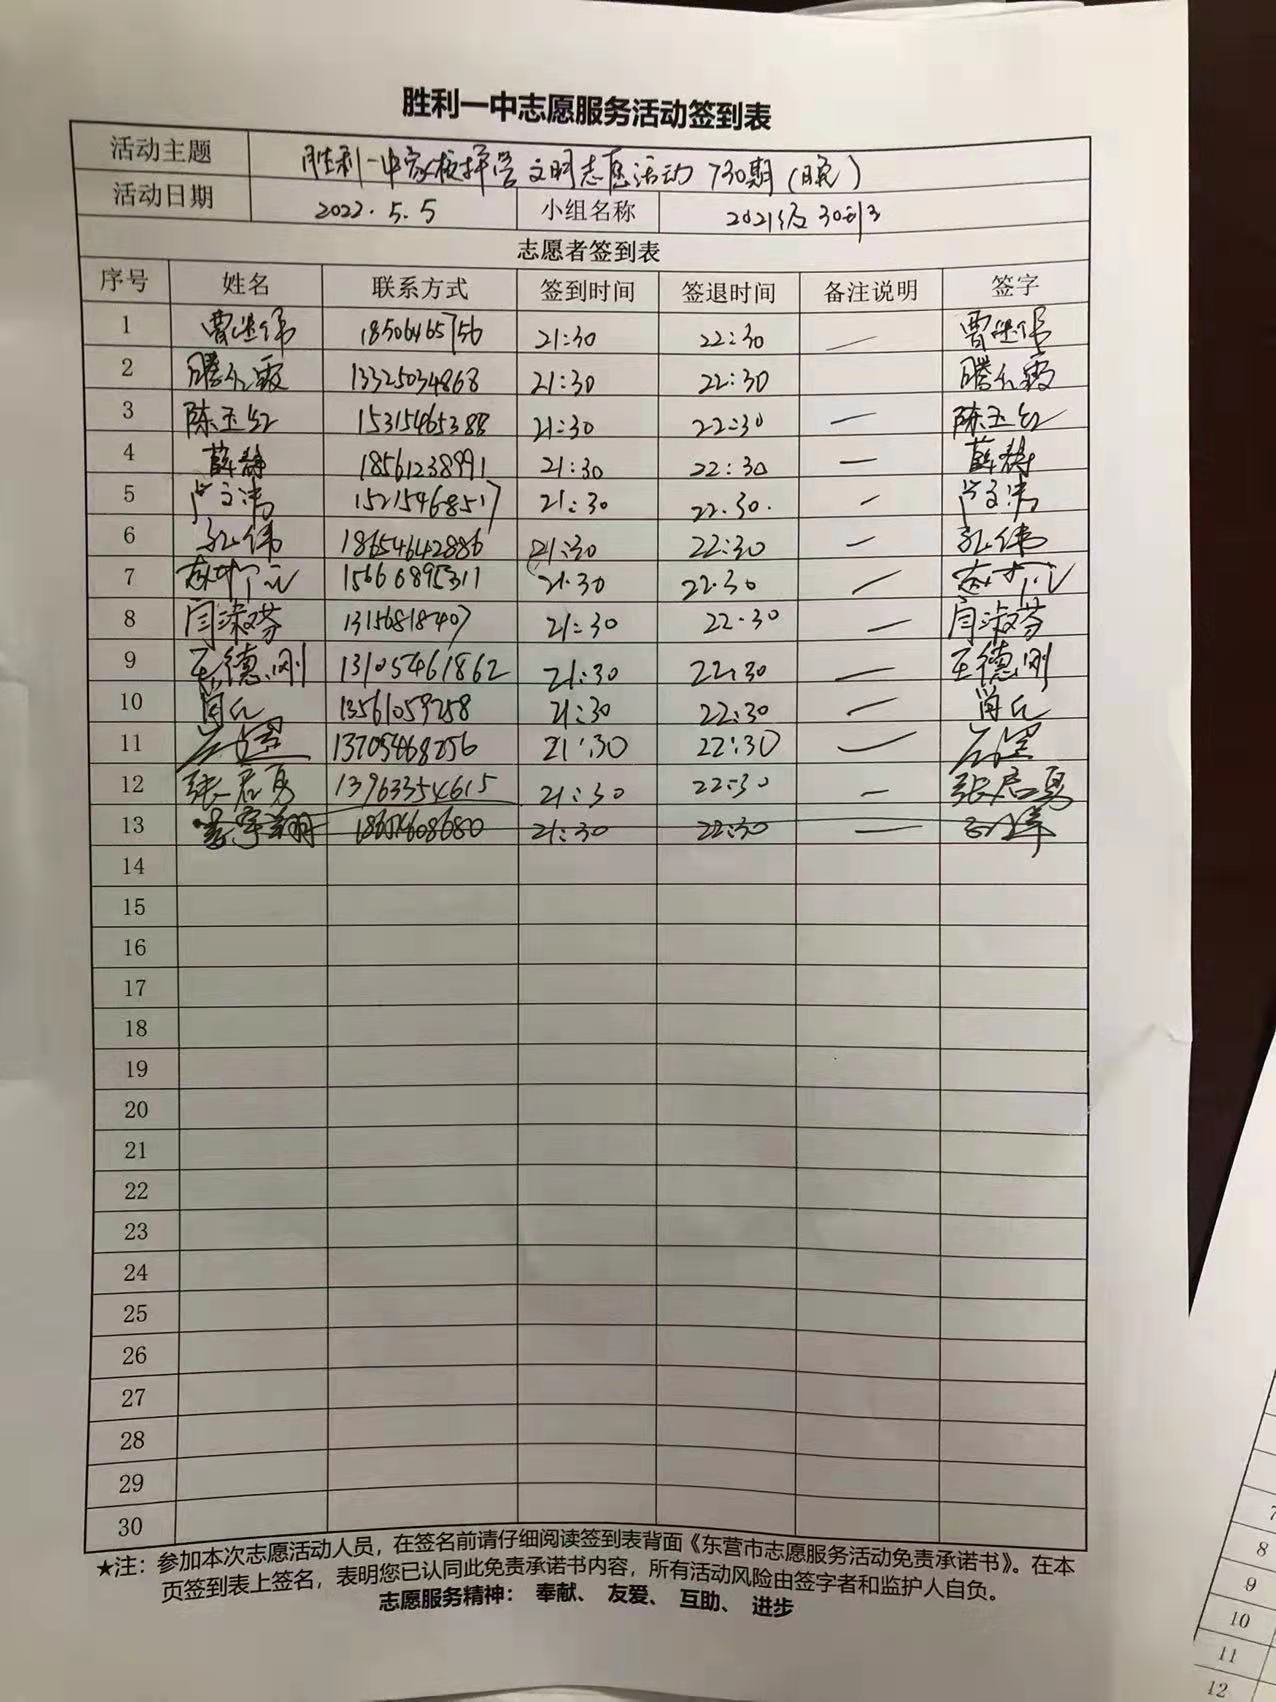 胜利一中志愿服务活动签到表
活动主题 胜利一中家校携手 文明志愿活动 730期（晚）
活动日期 2022.5.5 小组名称 2021级30班
志愿者签到表
序号 姓名 联系方式 签到时间 签退时间 备注说明 签字
1 18506465756 21:30 22:30 —
2 13325034868 21:30 22:30
3 陈玉红 15315465388 21:30 22:30 — 陈玉红
4 薛静 18561238991 21:30 22:30 — 薛静
5 15215468517 21:30 22.30. —
6 孔伟 18654642886 21:30 22:30 — 孔伟
7 15666895311 21.30 22.30 —
8 闫淑芬 13156818407 21:30 22:30 — 闫淑芬
9 王德刚 13105461862 21:30 22:30 — 王德刚
10 13561059258 21:30 22:30 —
11 13705468256 21:30 22:30 —
12 张启勇 13963354615 21:30 22:30 — 张启勇
13 21:30 22:30 —
14
15
16
17
18
19
20
21
22
23
24
25
26
27
28
29
30
★注：参加本次志愿活动人员，在签名前请仔细阅读签到表背面《东营市志愿服务活动免责承诺书》。在本
页签到表上签名，表明您已认同此免责承诺书内容，所有活动风险由签字者和监护人自负。
志愿服务精神： 奉献、 友爱、 互助、 进步
7
8
9
10
11
12